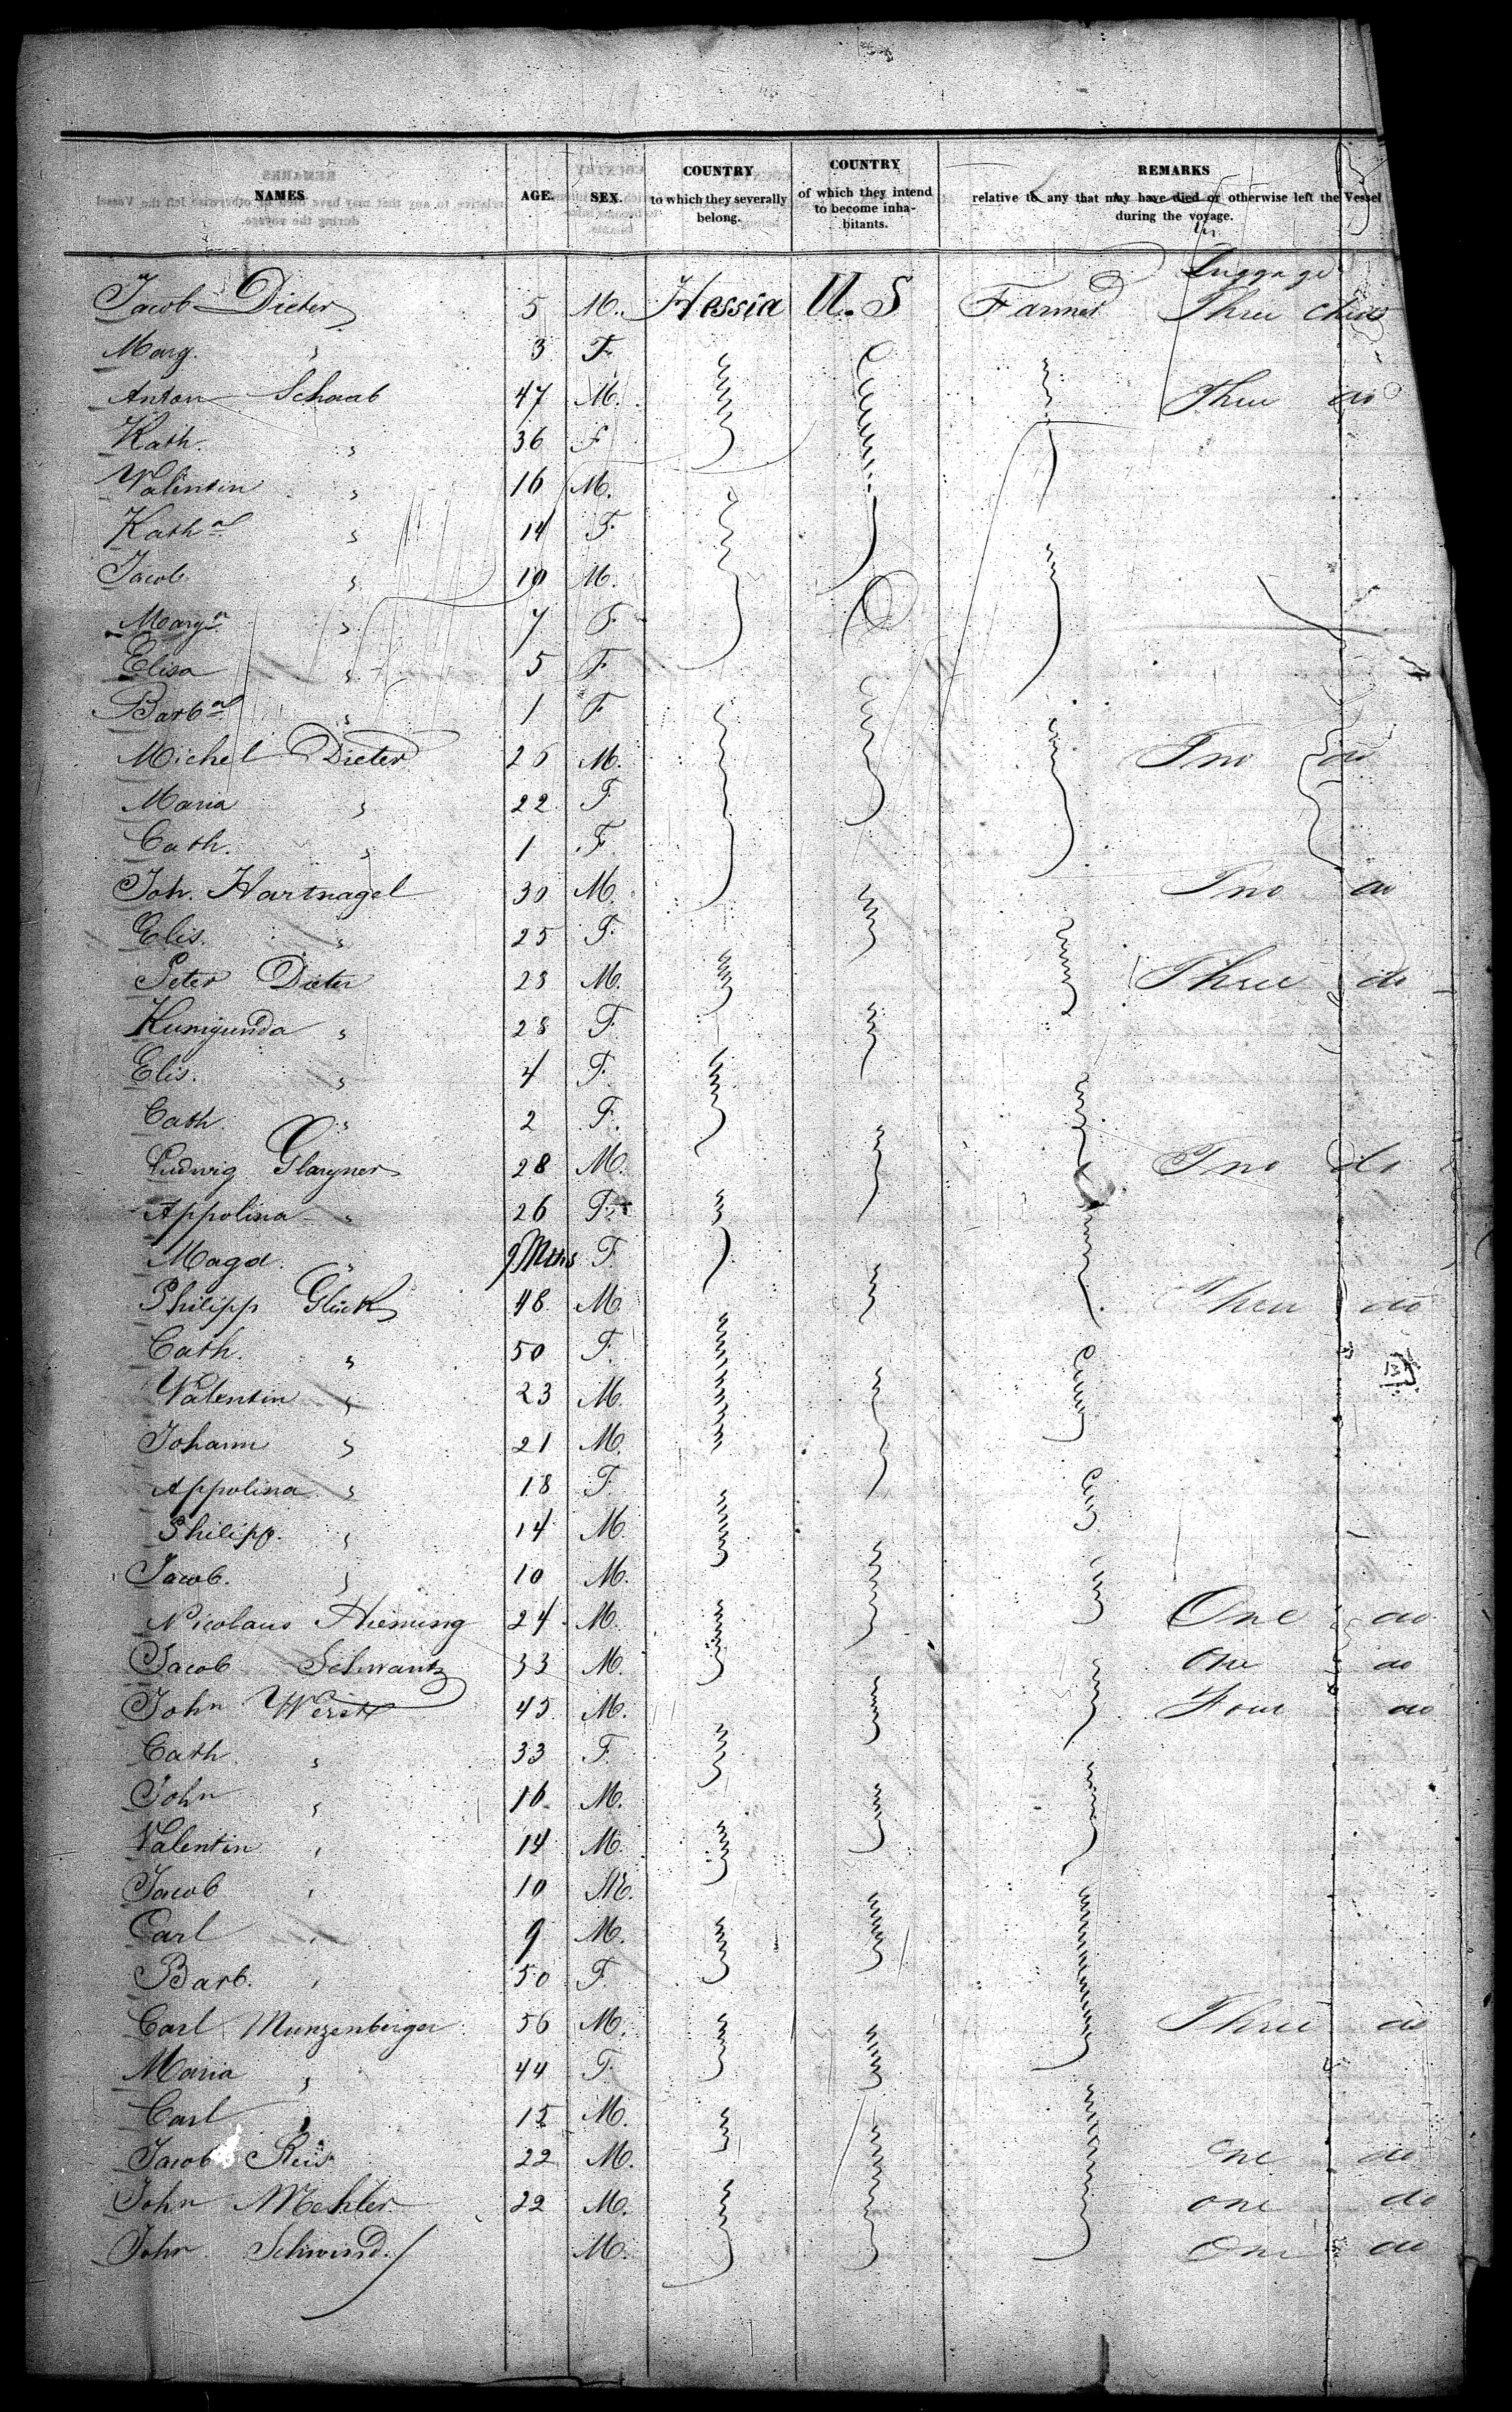 NAMES AGE. SEX. COUNTRY to which they severally belong. COUNTRY of which they intend to become inhabitants. REMARKS relative to any that may have died or otherwise left the Vessel during the voyage.
Luggage
Jacob Dieter 5 M. Hessia U. S Farmer Three Chests
Marg. " 3 F.
Anton Schaab 47 M. Three do
Kath. " 36 F
Valentin " 16 M.
Katha " 14 F.
Jacob " 10 M.
Marga " 7 F.
Elisa " 5 F
Barba " 1 F
Michel Dieter 26 M. Two do
Maria " 22 F
Cath. " 1 F.
Joh. Hartnagel 30 M. Two do
Elis. " 25 F.
Peter Dieter 28 M. Three do
Kunigunda " 28 F.
Elis. " 4 F.
Cath. " 2 F.
Ludwig 28 M. Two do
Appolina " 26 F.
Magd. " 9 Mths F.
Philipp Glück 48 M. Three do
Cath. " 50 F.
Valentin " 23 M.
Johann " 21 M.
Appolina " 18 F.
Philipp. " 14 M.
Jacob. " 10 M.
Nicolaus 24 M. One do
Jacob Schwantz 33 M. One do
John Werst 45 M. Four do
Cath. " 33 F.
John " 16 M.
Valentin " 14 M.
Jacob " 10 M.
Carl " 9 M.
Barb. " 50 F.
Carl Munzenberger 56 M. Three do
Maria " 44 F.
Carl " 15 M.
Jacob Reis 22 M. One do
John Mehler 22 M. one do
John Schwind M. One do